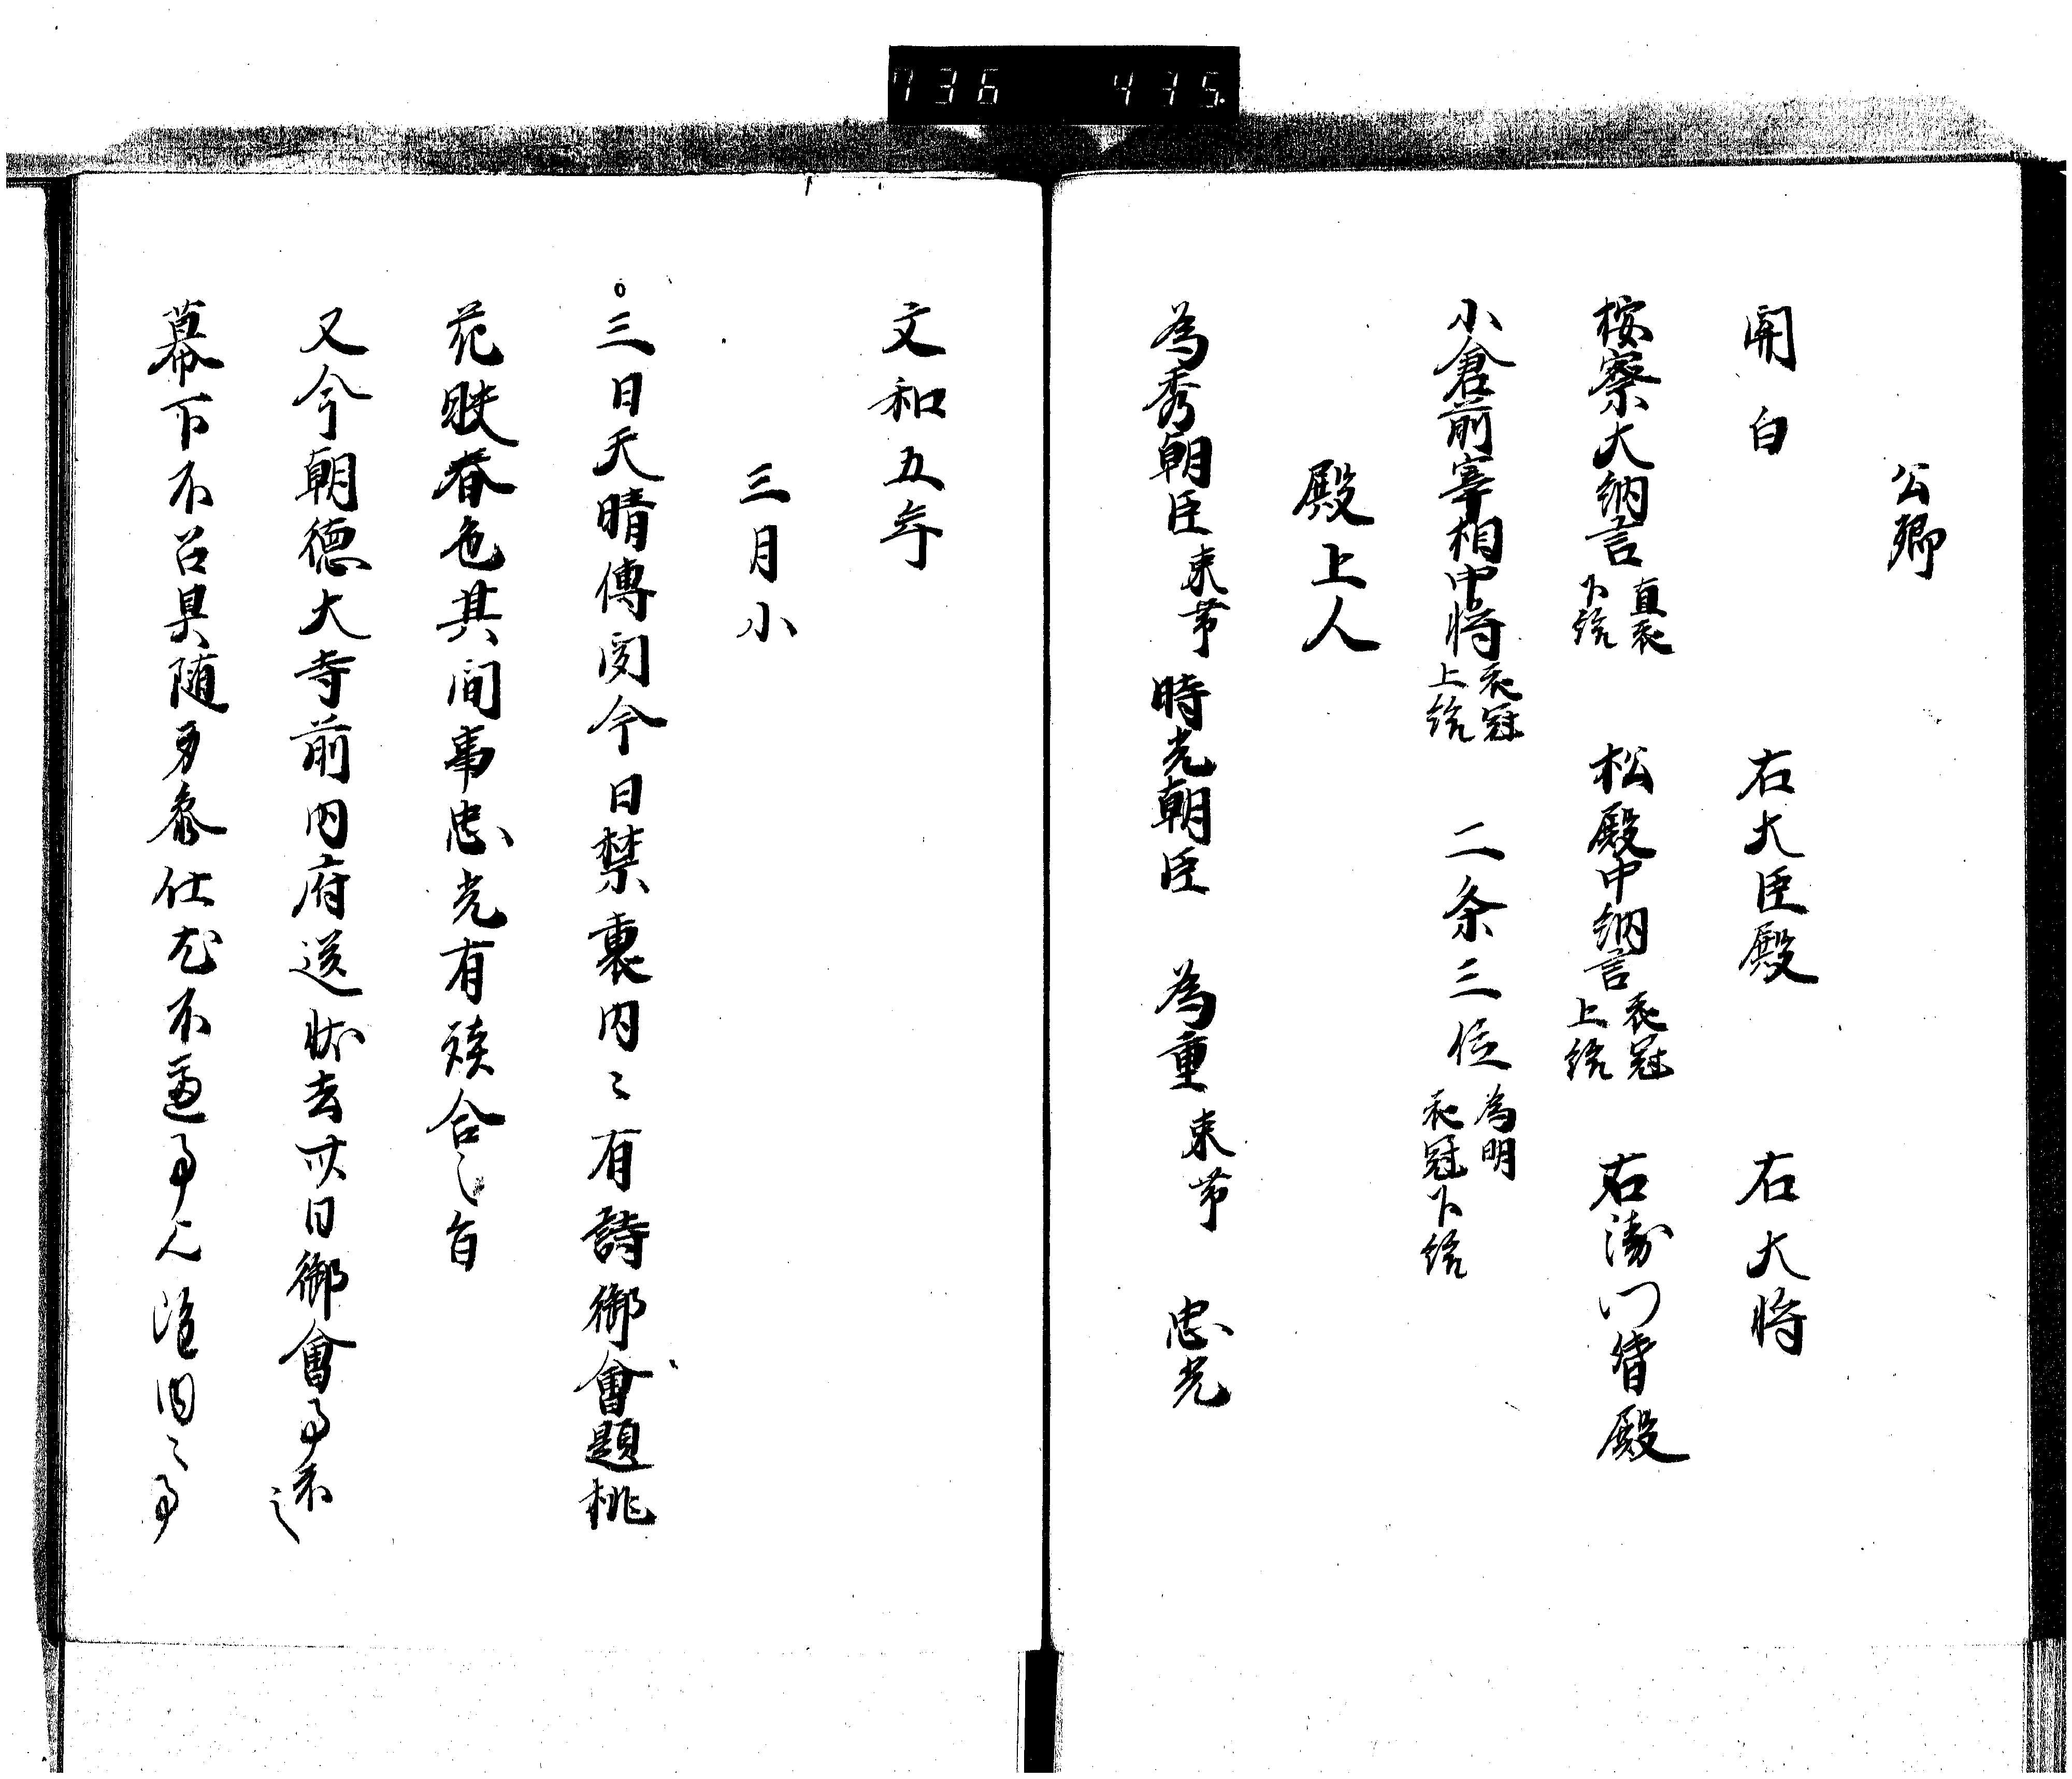 736 435
公卿
関白 右大臣殿 右大将
按察大納言 直衣下絬 松殿中納言 衣冠上絬 右衛門督殿
小倉前宰相中将 衣冠上絬 二条三位 為明衣冠下絬
殿上人
為秀朝臣 束帯 時光朝臣 為重 束帯 忠光
文和五年
三月小
三日天晴傳聞今日禁裏内々有詩御會題桃
花脥春色其間事忠光有談合之旨
又今朝德大寺前内府送状去廿日御會事示送之
幕下不召具随身参仕尤不審事也雖内々事